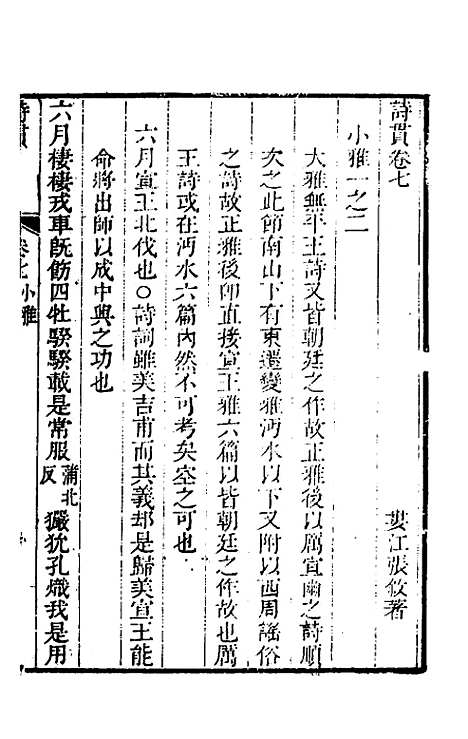 詩貫卷七
婁江張敘著
小雅一之二
大雅無平王詩又皆朝廷之作故正雅後以厲宣幽之詩順
次之此節南山下有東遷變雅沔水以下又附以西周謠俗
之詩故正雅後卽直接宣王雅六篇以皆朝廷之作故也厲
王詩或在沔水六篇內然不可考矣空之可也
六月宣王北伐也〇詩詞雖美吉甫而其義却是歸美宣王能
命將出師以成中興之功也
六月棲棲戎車旣飭四牡騤騤載是常服蒲北反玁狁孔熾我是用
詩貫 卷七小雅